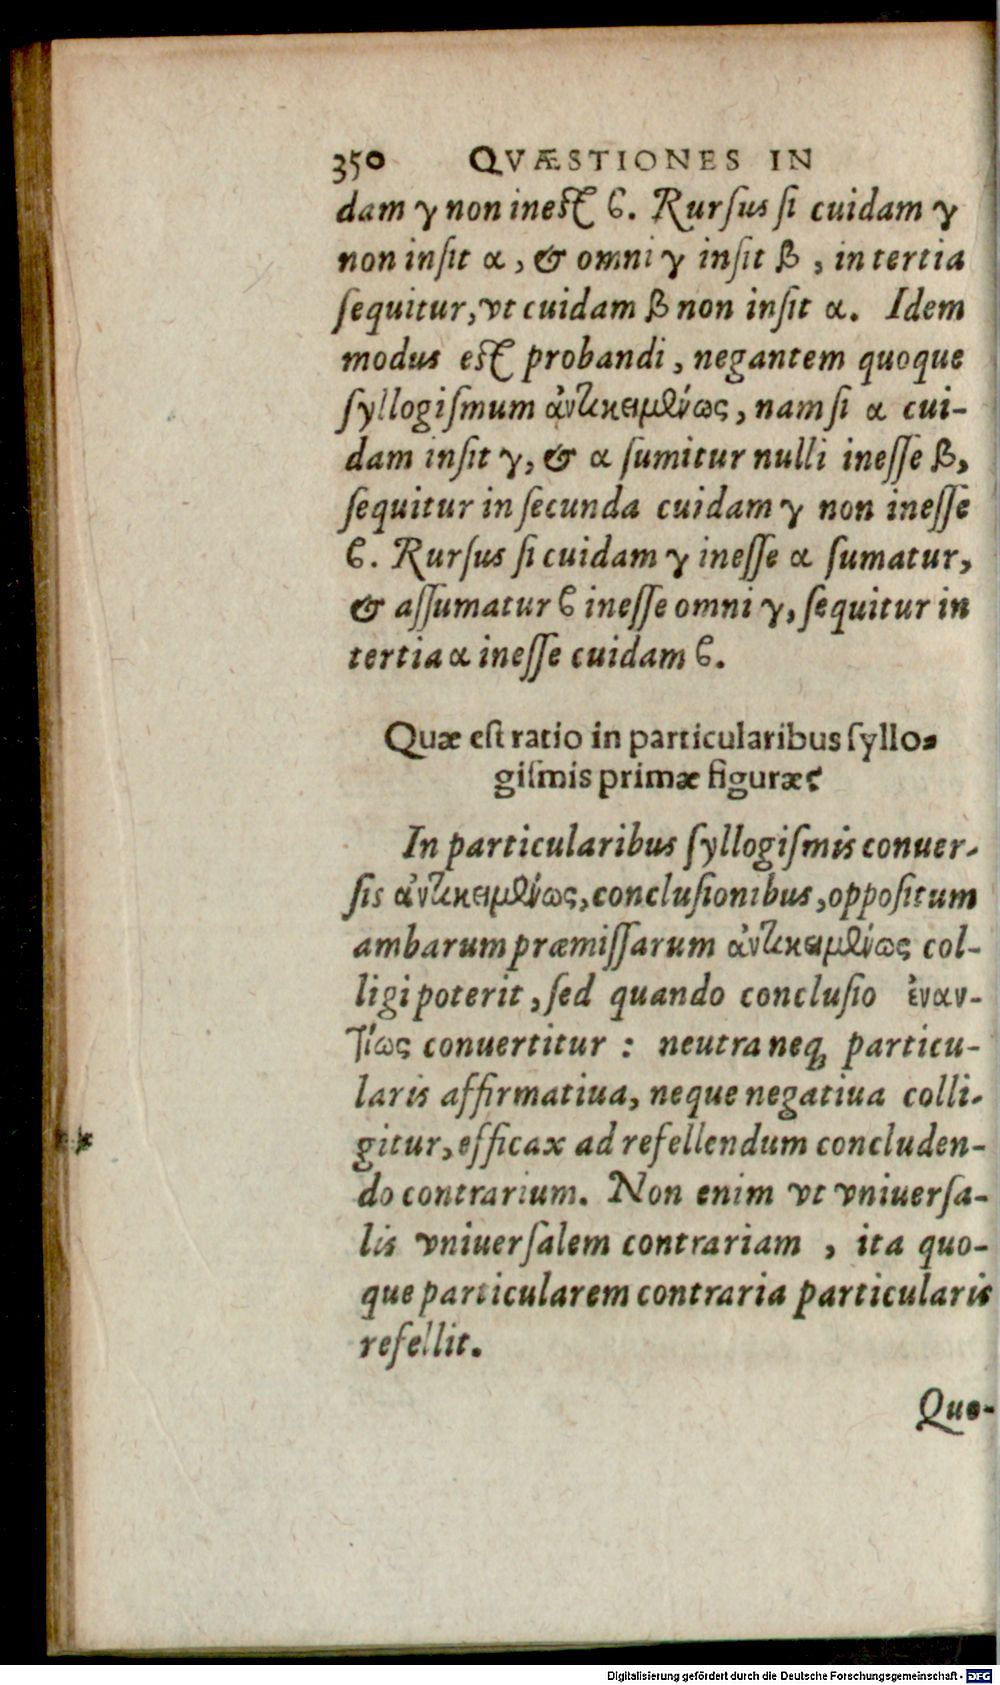 350 QVÆSTIONES IN
dam γ non inest ϐ. Rursus si cuidam γ
non insit α, & omni γ insit β, in tertia
sequitur, vt cuidam β non insit α. Idem
modus est probandi, negantem quoque
syllogismum ἀντικειμένως, nam si α cui-
dam insit γ, & α sumitur nulli inesse β,
sequitur in secunda cuidam γ non inesse
ϐ. Rursus si cuidam γ inesse α sumatur,
& assumatur ϐ inesse omni γ, sequitur in
tertia α inesse cuidam ϐ.
Quæ est ratio in particularibus syllo-
gismis primæ figuræ?
In particularibus syllogismis conuer-
sis ἀντικειμένως, conclusionibus, oppositum
ambarum præmissarum ἀντικειμένως col-
ligi poterit, sed quando conclusio ἐναν-
τίως conuertitur : neutra neq; particu-
laris affirmatiua, neque negatiua colli-
gitur, efficax ad refellendum concluden-
do contrarium. Non enim vt vniuersa-
lis vniuersalem contrariam, ita quo-
que particularem contraria particularis
refellit.
Quo-
Digitalisierung gefördert durch die Deutsche Forschungsgemeinschaft - DFG